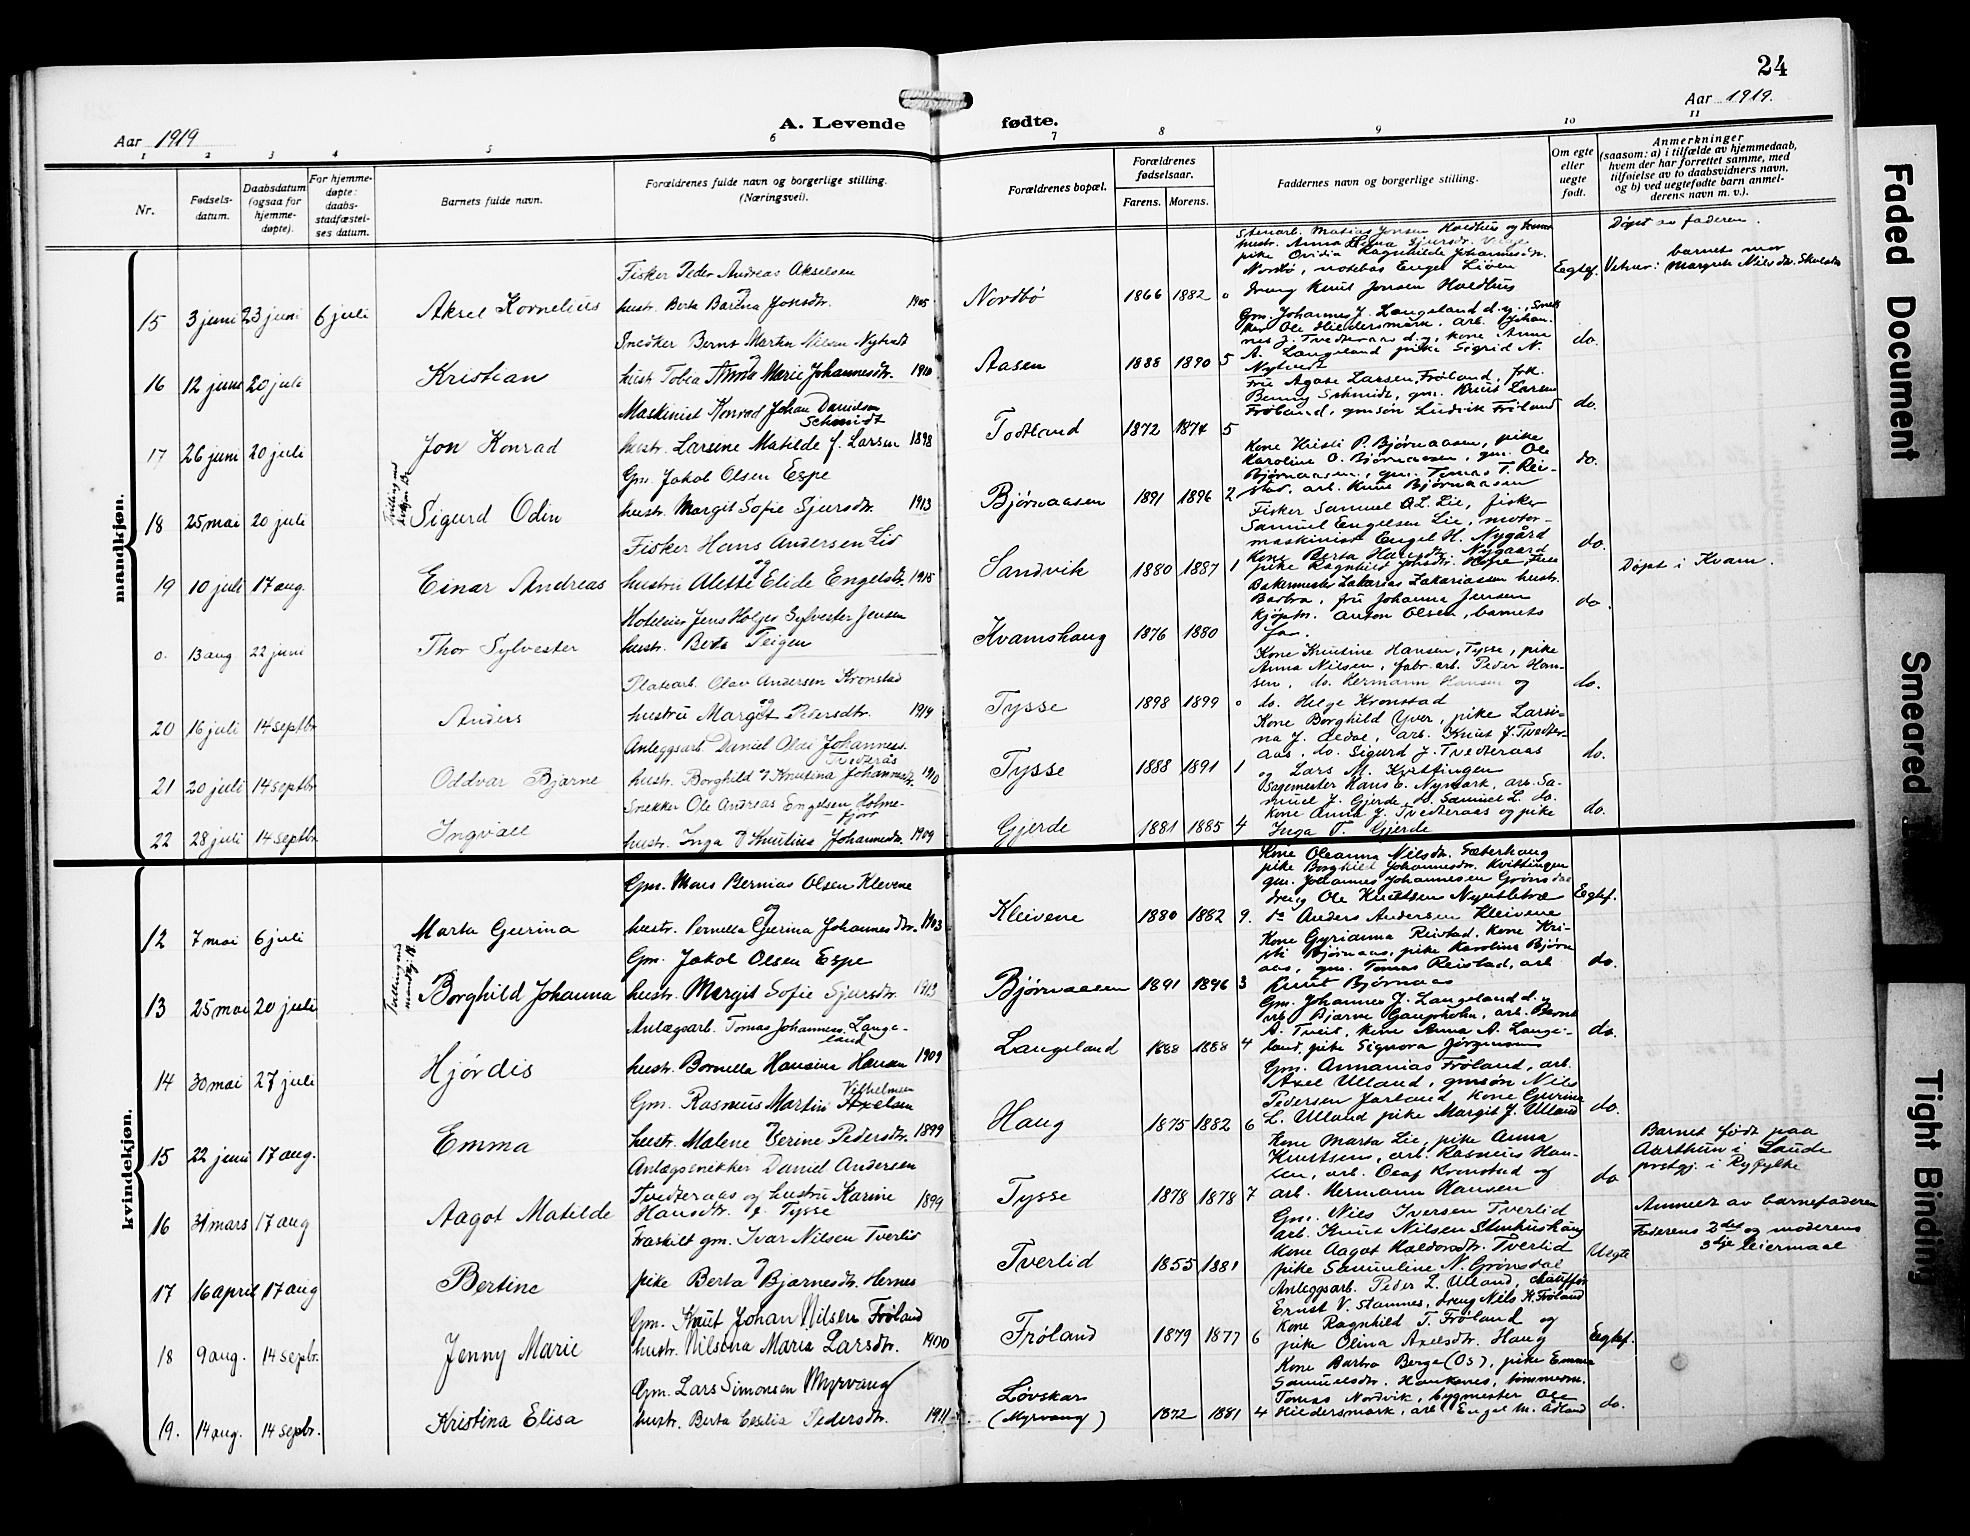 24
Aar 1919
A. Levende fødte.
Aar 1919.
1 2 3 4 5 6 7 8 9 10 11
Nr.
Fødsels-
datum.
Daabsdatum
(ogsaa for
hjemme-
døpte).
For hjemme-
døpte:
daabs-
stadfæstel-
ses datum.
Barnets fulde navn.
Forældrenes fulde navn og borgerlige stilling.
(Næringsvei).
Forældrenes bopæl.
Forældrenes
fødselsaar.
Farens. Morens.
Faddernes navn og borgerlige stilling.
Om egte
eller
uegte
født.
Anmerkninger
(saasom: a) i tilfælde av hjemmedaab,
hvem der har forrettet samme, med
tilføielse av to daabsvidners navn,
og b) ved uegtefødte barn anmel-
derens navn m. v.).
mandkjøn.
15 3 juni 23 juni 6 juli Aksel Kornelius
Fisker Peder Andreas Akselsen
og
hustr. Berta Bartina Jonsdtr. 1905
Nordbø 1866 1882 0
Stenarb. Matias Jonsen Holdhus og
hustr. Anna
pike Ovidia Ragnhilde Johannesdtr.
Nordbø, notebas Engel Liøen
dreng Knut Jonsen Holdhus
Egtef.
Døpt av faderen.
barnets mor
Vidner: Margrete Nilsdtr.
16 12 juni 20 juli Kristian
Snedker Bernt Martin Nilsen Nytvedt
og
hustr. Tobia Anna Marie Johannesdtr. 1910
Aasen 1888 1890 5
Gm. Johannes J. Langeland d.y., Sned-
ker Ole Hildersmark, arb. Johan-
nes J. Tvedteraas d.y., kone Anna
A. Langeland pike Sigrid N.
Nytvedt
do.
17 26 juni 20 juli Jon Konrad
Maskinist Konrad Johan Danielsen
Schmidt
hustr. Larsine Matilde f. Larsen 1898
Todtland 1872 1874 5
Fru Agate Larsen, Frøland, frk.
Benny Schmidt, gm. Knut Larsen
Frøland, gmsøn Ludvik Frøland
do.
18 25 mai 20 juli Sigurd Odin
Tvilling med
Gm. Jakob Olsen Espe
hustr. Margit Sofie Sjursdtr. 1913
Bjørnaasen 1891 1896 2
Kone Kristi P. Bjørnaasen, pike
Karoline O. Bjørnaasen, gm. Ole
Bjørnaasen, gm. Tomas T. Rei-
stad, arb. Knut Bjørnaasen
do.
19 10 juli 17 aug. Einar Andreas
Fisker Hans Andersen Lid
og
hustru Alette Elide Engelsdtr. 1915
Sandvik 1880 1887 1
Fisker Samuel O. L. Lie, fisker
Samuel Engelsen Lie, motor-
maskinist Engel H. Nygård
kone Berta Hansdtr. Nygaard
pike Ragnhild Johsdtr. Hope,
do.
o. 13 aug 22 juni Thor Sylvester
Hoteleier Jens Holger Sylvester Jensen
hustr. Berta Teigen
Kvamshaug 1876 1880
Bakermester Zakarias Zakariassen hustr.
Barbra, fru Johanna Jensen
Kjøpm. Anton Olsen, barnets
far.
do.
Døpt i Kvam.
20 16 juli 14 septbr Anders
Platearb. Olav Andersen Kronstad
og
hustru Margit Pedersdtr. 1919
Tysse 1898 1899 0
Kone Knutine Hansen, Tysse, pike
Anna Nilsen, fabr. arb. Peder Han-
sen, do. Hermann Hansen og
do. Helge Kronstad
do.
21 20 juli 14 septbr Oddvar Bjarne
Anleggsarb. Daniel Olai Johannes.
Tvedterås
hustr. Borghild Knutina Johannesdtr. 1910
Tysse 1888 1891 1
Kone Borghild Yver, pike Larsi-
na J. Aadal, arb. Knut J. Tvedter-
aas, do. Sigurd J. Tvedteraas
og Lars M. Kvitfingen
do.
22 28 juli 14 septbr Ingvall
Snekker Ole Andreas Engelsen Holme-
fjor
hustr. Inga Knutina Johannesdtr. 1909
Gjerde 1881 1885 4
Bagemester Hans E. Nymark, arb. Sa-
muel J. Gjerde, do. Samuel L. do.
kone Anna J. Tvedteraas og pike
Inga T. Gjerde
do.
kvindekjøn.
12 7 mai 6 juli Marta Gurina
Gm. Mons Bernias Olsen Klevene
og
hustr. Pernella Gurina Johannesdtr. 1903
Kleivene 1880 1882 9.
Kone Oleanna Nilsdtr. Sæterhaug
pike Borghild Johannesdtr. Kvittingen
gm. Johannes Johannesen Grønsdal
dreng Ole Knutsen
do Anders Andersen Kleivene
Egtef.
13 25 mai 20 juli Borghild Johanna
Tvilling med
mandkj. 18
Gm. Jakob Olsen Espe
hustr. Margit Sofie Sjursdtr. 1913
Bjørnaasen 1891 1896 3
Kone Gyrianna Reistad. kone Kri-
sti Bjørnaas, pike Karoline Bjørn-
aas, gm. Tomas Reistad, arb
Knut Bjørnaas
do.
14 30 mai 27 juli Hjørdis
Anlægsarb. Tomas Johanness. Lange-
land
hustr. Bornella Hansine Hansen 1909
Langeland 1888 1888 4
Gm. Johannes J. Langeland d.y.
arb Bjarne Gaupholm, arb. Bernt
A. Tveit, kone Anna A. Lange-
land, pike Signora Jørgensen
do.
15 22 juni 17 aug. Emma
Gm. Rasmus Martin Axelsen
Vilhelmsen
hustr. Malene Verine Pedersdtr. 1899
Haug 1875 1882 6
Gm. Annanias Frøland, arb.
Axel Ulland, gmsøn Nils
Pedersen Jarland, kone Gurine
L. Ulland pike Margit J. Ulland
do.
16 31 mars 17 aug Aagot Matilde
Anlægssnekker Daniel Andersen
Tvedteraas og hustru Karine
Hansdtr. f. Tysse 1899
Tysse 1878 1878 7
Kone Marta Lie, pike Anna
Knutsen, arb. Rasmus Han-
sen, arb. Olaf Kronstad og
arb. Hermann Hansen
do
Barnet født paa
Aarthun i Saude
prstgj. i Ryfylke
17 16 april 17 aug Bertine
Fraskilt gm. Ivar Nilsen Tverlid
og
pike Berta Bjarnesdtr. Hernes
Tverlid 1855 1881
Gm. Nils Iversen Tverlid
arb. Knut Nilsen Stenhushaug
kone Aagot Haldorsdtr. Tverlid
pike Samueline N. Grønsdal
Uegte
Anmeldt av barnefaderen
Faderens 2det og moderens
3dje leiermaal
18 9 aug. 14 sepbr. Jenny Marie
Gm. Knut Johan Nilsen Frøland
hustr. Nilsina Maria Larsdtr. 1900
Frøland 1879 1877 6
Anleggsarb. Peder L. Ulland, chauffør
Ernst V. Stamnes, dreng Nils K. Frøland
kone Ragnhild T. Frøland og
pike Olina Axelsdtr. Haug
Egtef.
19. 14 aug. 14 sepbr. Kristina Elisa
Gm. Lars Simonsen Myrvang
hustr. Berta Cesilia Pedersdtr. 1911
Løvskar
(Myrvang) 1872 1881 4
Kone Barbra Berge (Os), pike Emma
Samuelsdtr. Haukenes, tømmerm.
Tomas Nordvik, bygmester Ole
Hildersmark, arb. Engel M. Ådland
do.
Faded Document
Smeared
Tight Binding